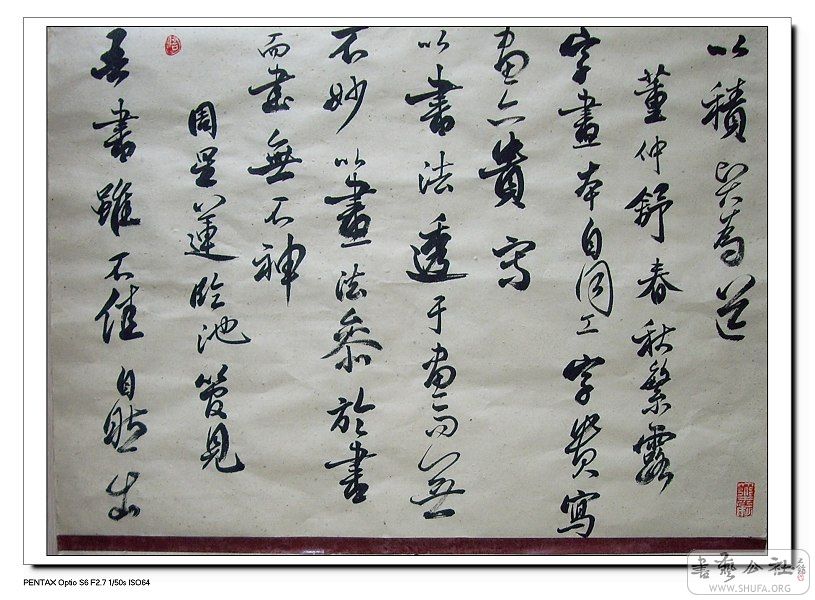 以積賢為道
董仲舒春秋繁露
字畫本自同工字貴寫
畫亦貴寫
以書法透于畫而無
不妙以畫法參於書
而書無不神
周星蓮臨池管見
吾書雖不佳自然出
書藝公社
WWW.SHUFA.ORG
PENTAX Optio S6 F2.7 1/50s ISO64